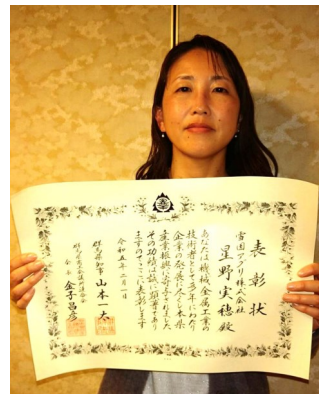 表彰状
雪国アグリ株式会社
星野実穂殿
あなたは機械金属工業の
技術者として多年にわたり
企業の発展に尽くし本県
産業振興に寄与されました
その功績は誠に顕著であり
ますのでここに表彰します
令和五年二月一日
群馬県知事 山本一太
会長 金子昌彦